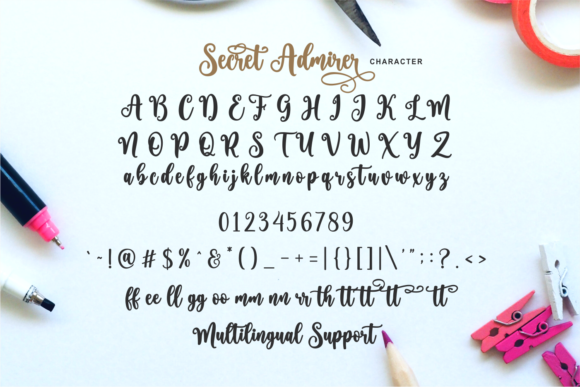 Secret Admirer CHARACTER
A B C D E F G H I J K L M
N O P Q R S T U V W X Y Z
abcdefghijklmnopqrstuvwxyz
0123456789
`~!@#$%^&*()_-+=|{}[]|\'";:?.<>
ff ee ll gg oo mm nn rr th tt tt tt tt
Multilingual Support